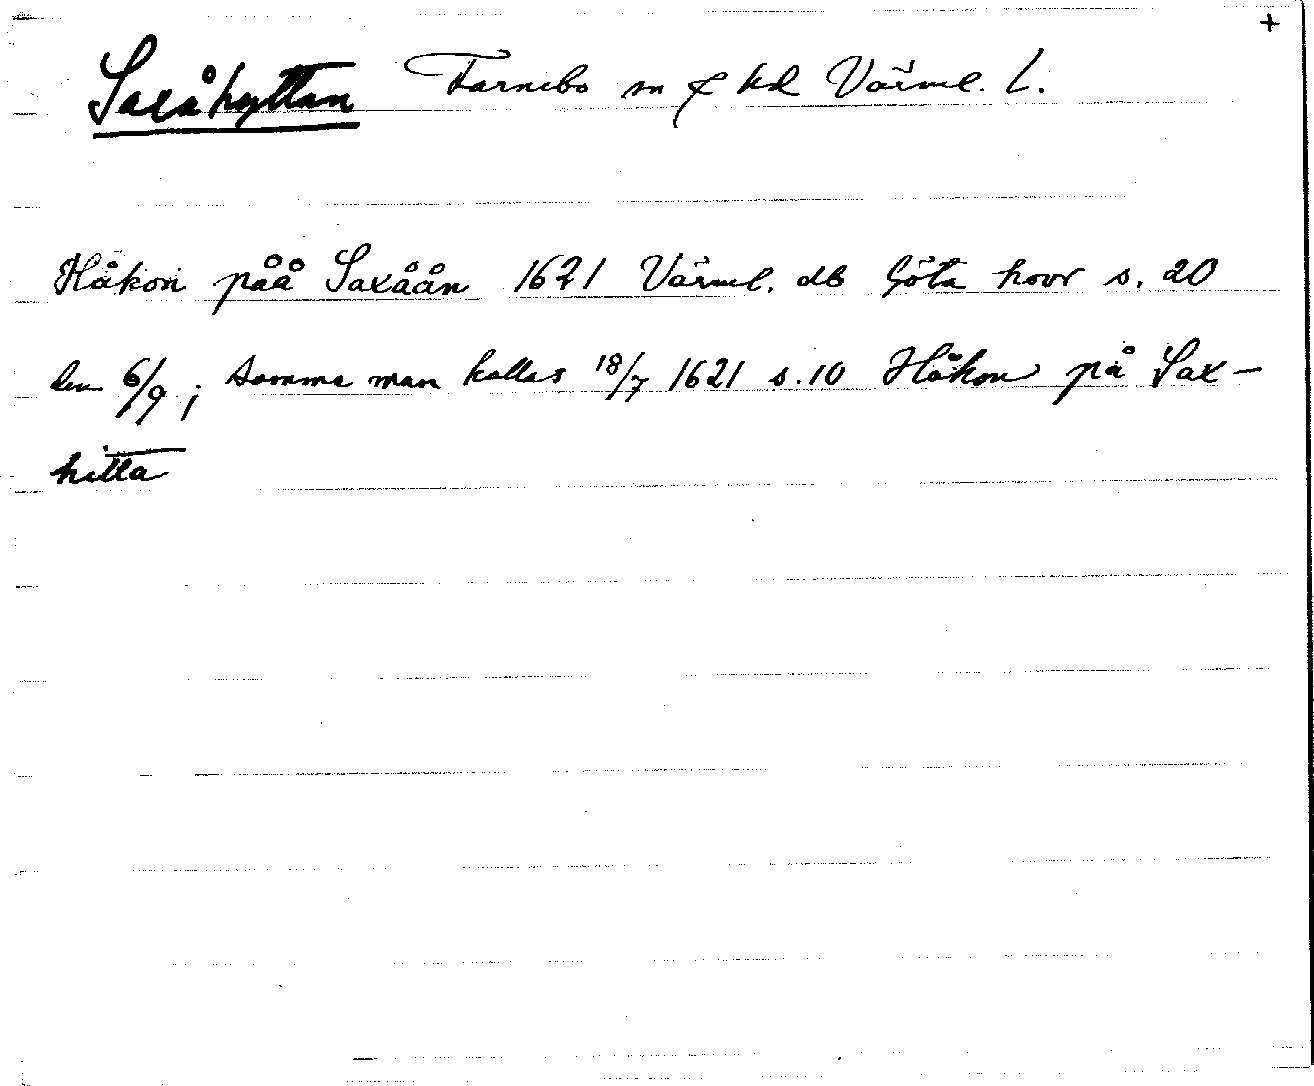 +
Saxåhyttan Färnebo sn & hd Värml. l.
Håkon påå Saxåån 1621 Värml. db Göta hovr s. 20
den 6/9; samma man kallas 18/7 1621 s. 10 Håkon på Sax-
hitta